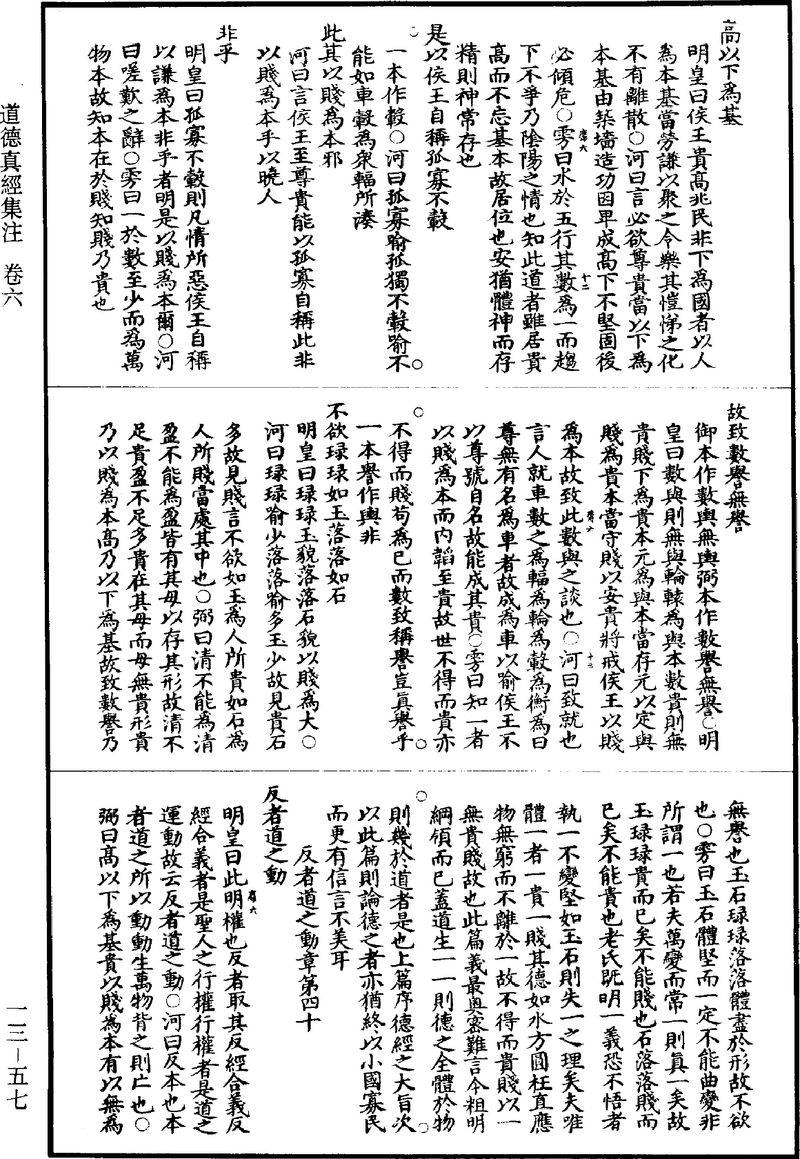 高以下為基
明皇曰侯王貴高兆民非下為國者以人
為本基當勞謙以聚之令樂其愷悌之化
不有離散○河曰言必欲尊貴當以下為
本基由築墻造功因卑成高下不堅固後
必傾危○雱曰水於五行其數為一而趨
下不爭乃陰陽之情也知此道者雖居貴
高而不忘基本故居位也安猶體神而存
精則神常存也
是以侯王自稱孤寡不轂
一本作穀○河曰孤寡喻孤獨不轂喻不
能如車轂為衆輻所湊
此其以賤為本邪
河曰言侯王至尊貴能以孤寡自稱此非
以賤為本乎以曉人
非乎
明皇曰孤寡不轂則凡情所惡侯王自稱
以謙為本非乎者明是以賤為本爾○河
曰嗟歎之辭○雱曰一於數至少而為萬
物本故知本在於賤知賤乃貴也
故致數譽無譽
御本作數輿無輿弼本作數譽無譽○明
皇曰數輿則無輿輪轅為輿本數貴則無
貴賤下為貴本元為輿本當存元以定輿
賤為貴本當守賤以安貴將戒侯王以賤
為本故致此數輿之談也○河曰致就也
言人就車數之為輻為輪為轂為衡為曰
尊無有名為車者故成為車以喻侯王不
以尊號自名故能成其貴○雱曰知一者
以賤為本而內韜至貴故世不得而貴亦
不得而賤苟為已而數致稱譽豈真譽乎
一本譽作輿非
不欲琭琭如玉落落如石
明皇曰琭琭玉貌落落石貌以賤為大○
河曰琭琭喻少落落喻多玉少故見貴石
多故見賤言不欲如玉為人所貴如石為
人所賤當處其中也○弼曰清不能為清
盈不能為盈皆有其母以存其形故清不
足貴盈不足多貴在其母而母無貴形貴
乃以賤為本高乃以下為基故致數譽乃
無譽也玉石琭琭落落體盡於形故不欲
也○雱曰玉石體堅而一定不能曲變非
所謂一也若夫萬變而常一則真一矣故
玉琭琭貴而已矣不能賤也石落落賤而
已矣不能貴也老氏既明一義恐不悟者
執一不變堅如玉石則失一之理矣夫唯
體一者一貴一賤其德如水方圓枉直應
物無窮而不離於一故不得而貴賤以一
無貴賤故也此篇義最奧密難言今粗明
綱領而已蓋道生一一則德之全體於物
則幾於道者是也上篇序德經之大旨次
以此篇則論德之者亦猶終以小國寡民
而更有信言不美耳
反者道之動章第四十
反者道之動
明皇曰此明權也反者取其反經合義反
經合義者是聖人之行權行權者是道之
運動故云反者道之動○河曰反本也本
者道之所以動動生萬物背之則亡也○
弼曰高以下為基貴以賤為本有以無為
道德真經集注　卷六
一三－五七